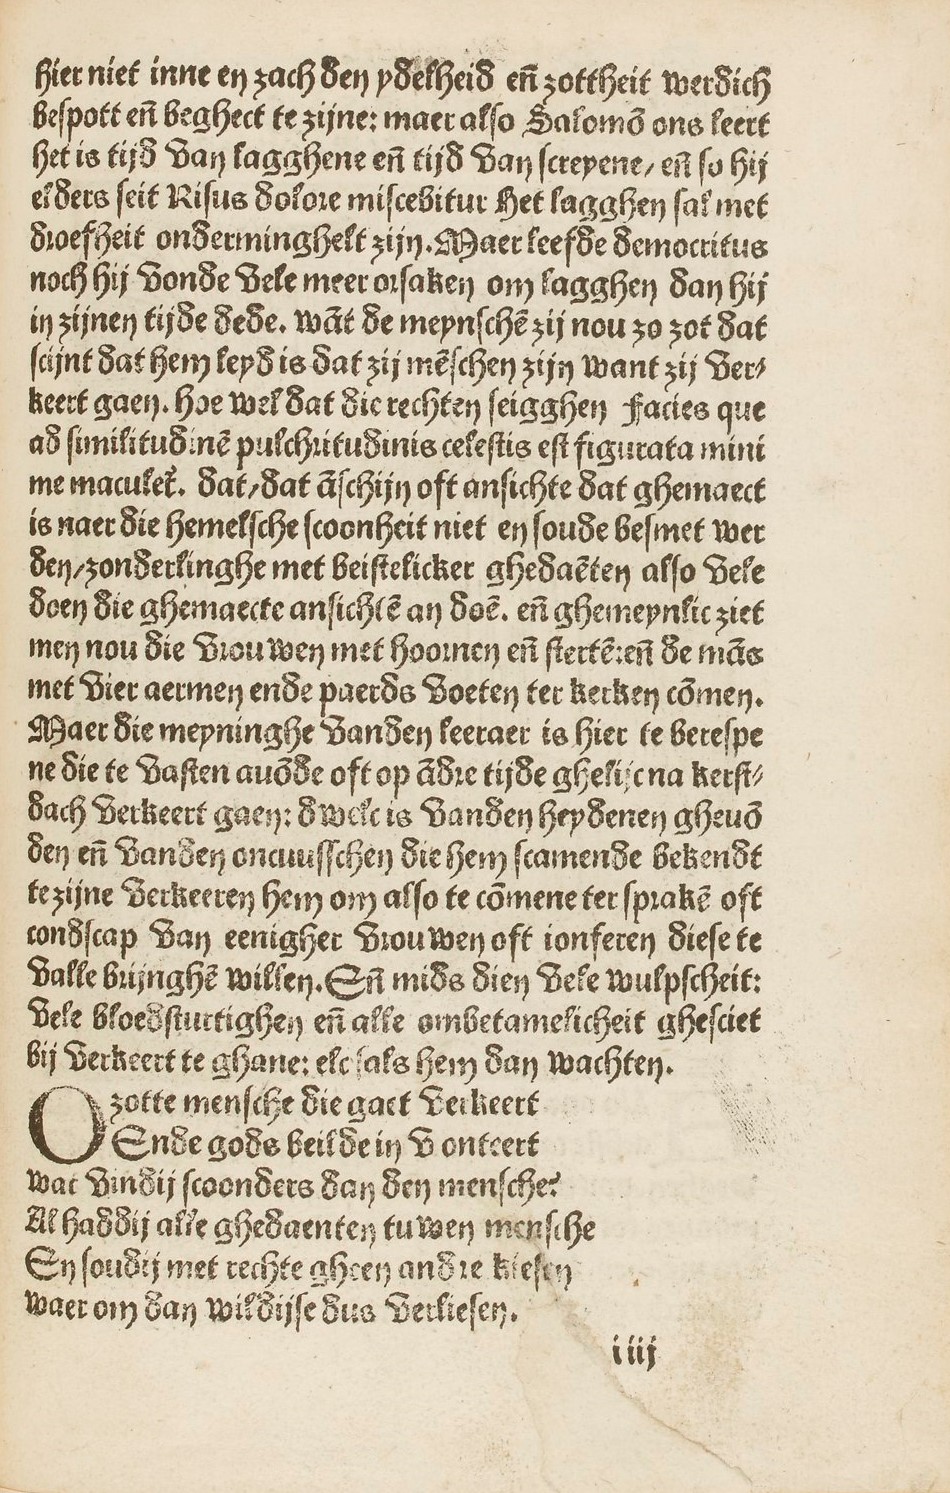 hier niet inne en zach den ydelheid en̄ zottheit werdich
bespott en̄ beghect te zijne: maer also Salomō ons leert
het is tijd van lagghene en̄ tijd van screyene/ en̄ so hij
elders seit Risus dolore miscebitur Het lagghen sal met
droefheit onderminghelt zijn. Maer leefde democritus
noch hij vonde vele meer orsaken om lagghen dan hij
in zijnen tijde dede. wāt de meynschē zij nou zo zot dat
scijnt dat hem leyd is dat zij mēschen zijn want zij ver/
keert gaen. hoe wel dat die rechten seigghen Facies que
ad similitudinē pulchritudinis celestis est figurata mini
me maculet̄. dat/dat āschijn oft ansichte dat ghemaect
is naer die hemelsche scoonheit niet en soude besmet wer
den/zonderlinghe met beistelicker ghedaēten also vele
doen die ghemaecte ansichtē an doē. en̄ ghemeynlic ziet
men nou die vrouwen met hoornen en̄ stertē:en̄ de mās
met vier aermen ende paerds voeten ter kerken cōmen.
Maer die meyninghe vanden leeraer is hier te berespe
ne die te vasten auōde oft op ādre tijde ghelijc na kerst/
dach verkeert gaen: dwelc is vanden heydenen gheuō
den en̄ vanden oncuusschen die hem scamende bekendt
te zijne verkeeren hem om also te cōmene ter sprakē oft
condscap van eenigher vrouwen oft ionferen diese te
valle brijnghē willen. En̄ mids dien vele wulpscheit:
vele bloedsturtighen en̄ alle ombetamelicheit ghesciet
bij verkeert te ghane: elc sals hem dan wachten.
O zotte mensche die gaet verkeert
Ende gods beilde in v onteert
wat vindij scoonders dan den mensche?
Al haddij alle ghedaenten tuwen mensche
En soudij met rechte gheen andre kiesen
waer om dan wildijse dus verliesen.
iiij